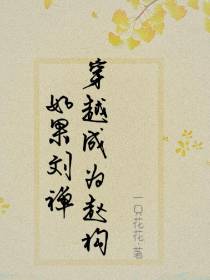 穿越成为赵构
如果刘禅
一只花花 著